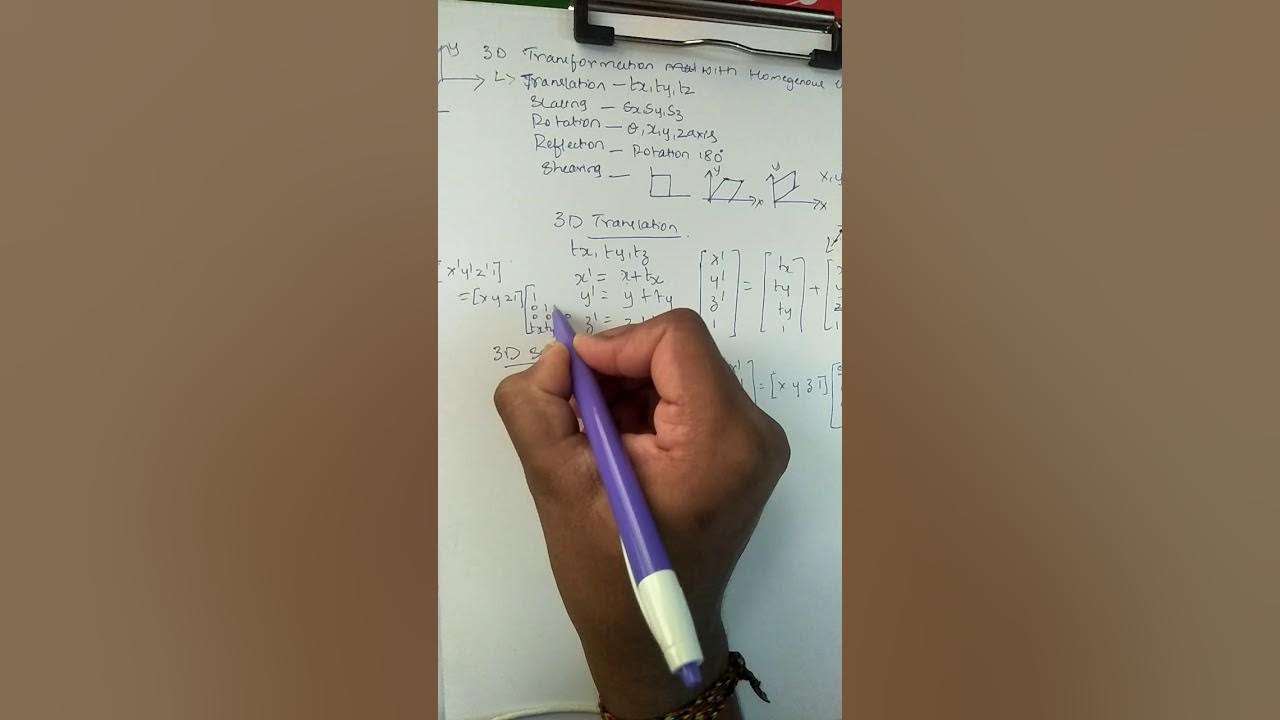 y 3D Transformation with Homogenous
L> Translation - tx, ty, tz
Scaling - Sx, Sy, Sz
Rotation - θ, x, y, z axis
Reflection - Rotation 180°
Shearing -
y y x, y
x x
3D Translation
tx, ty, tz
[x' y' z' 1]
x' = x + tx
= [x y z 1] [ 1
y' = y + ty
0 1
0 0 0
tx ty
z' =
[ x' y' z' 1 ] = [ tx ty ty 1 ] + [
3D S
= [x y z 1] [ S